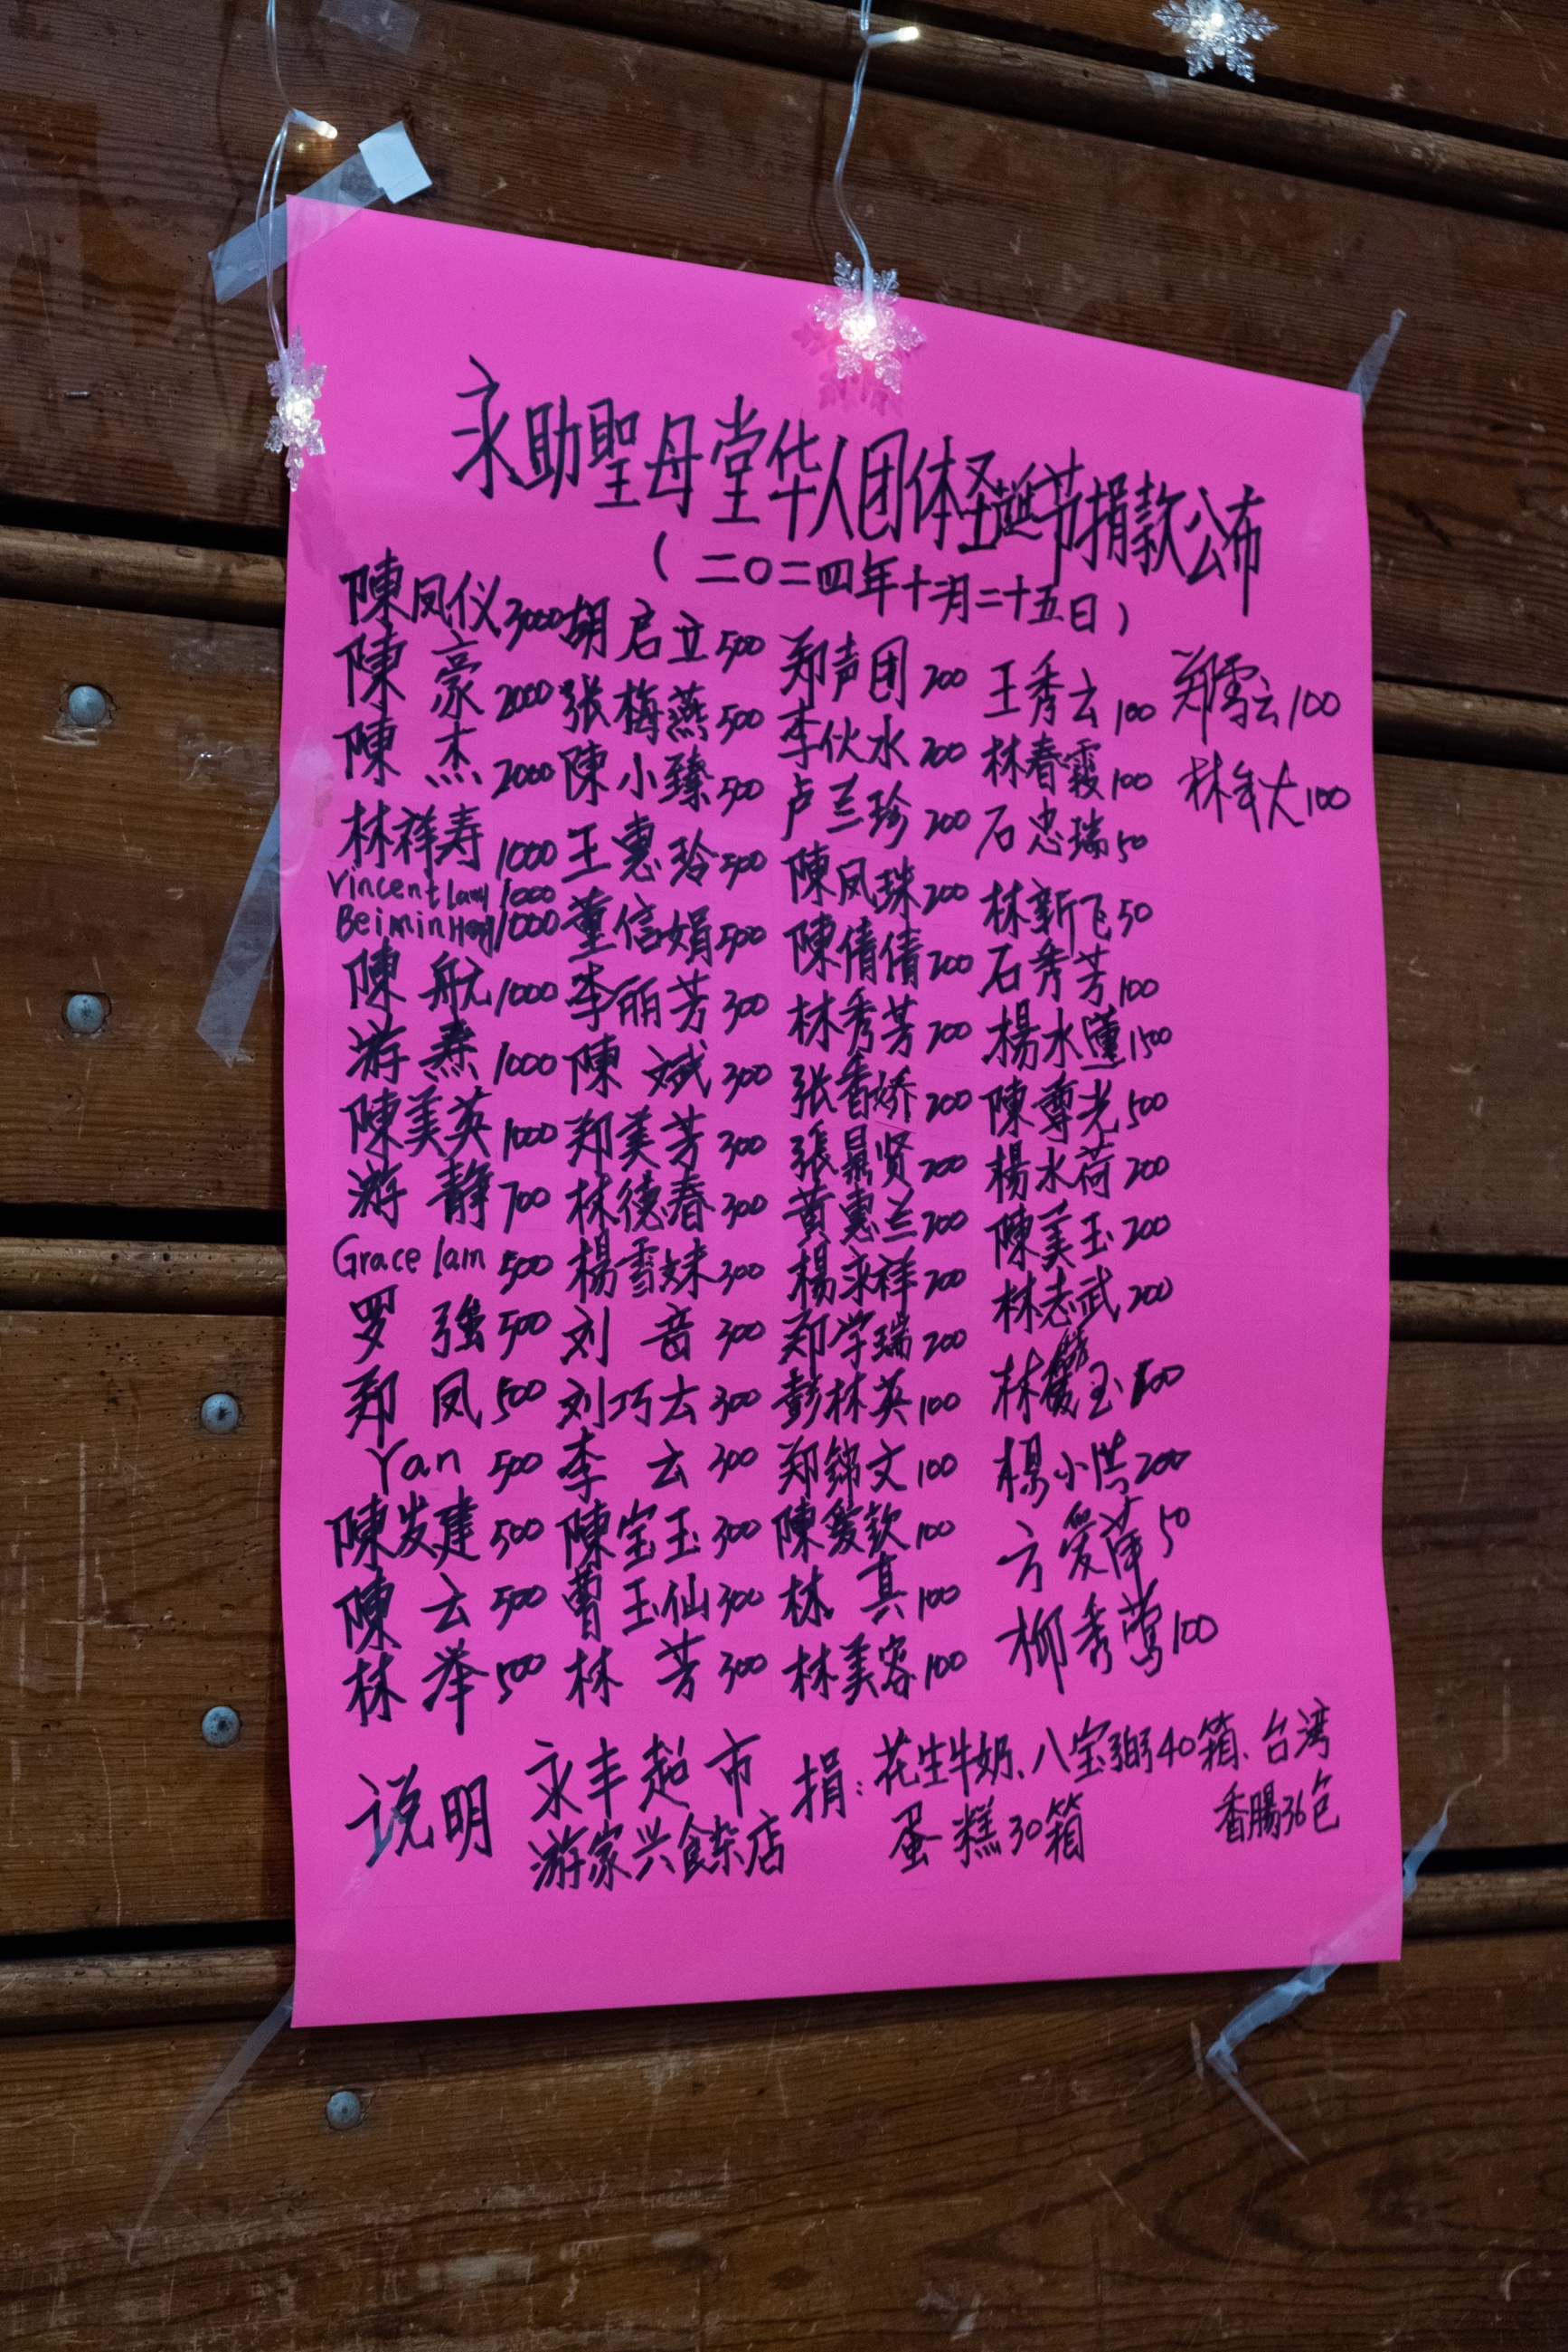 永助聖母堂华人团体圣诞节捐款公布
(二〇二四年十二月二十五日)
陳凤仪 3000
陳 豪 2000
陳 杰 2000
林祥寿 1000
Vincent lam 1000
Beimin 1000
陳 航 1000
游 燾 1000
陳美英 1000
游 静 700
Grace lam 500
罗 強 500
郑 凤 500
Yan 500
陳发建 500
陳 云 500
林 举 500
胡启立 500
张梅燕 500
陳小臻 500
王惠玲 500
董信娟 500
李丽芳 300
陳 斌 300
郑美芳 300
林德春 300
楊雪妹 300
刘 音 300
刘巧云 300
李 云 300
陳宝玉 300
曹玉仙 300
林 芳 300
郑声团 200
李伙水 200
卢兰珍 200
陳凤珠 200
陳倩倩 200
林秀芳 200
张香娇 200
張鼎贤 200
黄惠兰 200
楊永祥 200
郑学瑞 200
彭林英 100
郑錦文 100
陳爱钦 100
林 真 100
林美容 100
王秀云 100
林春霞 100
石忠瑞 50
林新飞 50
石秀芳 100
楊水 1500
陳尊光 500
楊水荷 200
陳美玉 200
林志武 200
林 玉
楊小 200
方爱萍 50
柳秀莺 100
郑雪云 100
林 100
说明
永丰超市
游家兴餘杂店
捐:
花生牛奶、八宝粥40箱、台湾
蛋糕30箱 香腸36包